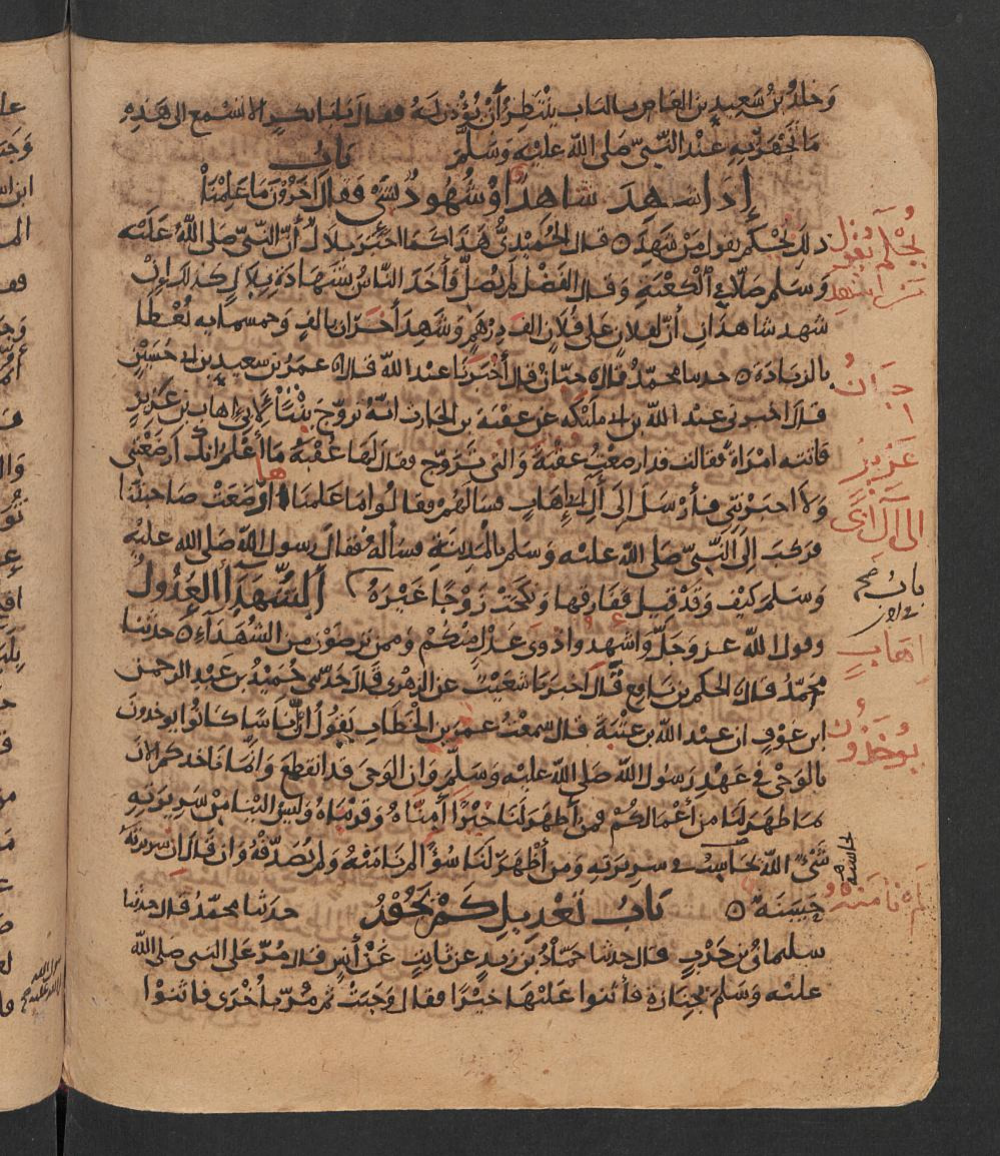 وَخَلِدُ بْنُ سَعِيدِ بنِ العَاصِ بالبَابِ يَنْتَظِرُ أَنْ يُؤْذَنَ لَهُ فقال يَابَا بكرٍ الا تسْمع الى هَذِهِ
مَا تَجْهَرُ بِهِ عِنْدَ النَّبِيّ صَلى الله عليْهِ وَسَلَّمَ بَابُ
إِذَا شَهِدَ شَاهِدٌ اوْ شُهُودٌ بِشَيْءٍ فَقَالَ آخَرُونَ مَا عَلِمْنَا
ذلك يُحْكَم بقول مَنْ شَهِدَ ٥ قالَ الحُمَيْدِيُّ هَذَا كمَا اخبَرَ بِلَالٌ أنّ النّبيّ صَلى اللهُ عَلَيْه
وَسَلم صَلَّا في الْكعْبَةِ وَقَال الفَضْل لم يُصَلِّ فَأَخَذَ النّاسُ بِشَهَادَةِ بِلَالٍ كذلك إِنْ
شهد شاهدَانِ أنّ لفلانٍ عَلى فُلانٍ الف دِرْهَمٍ وَشَهِدَ آخَرَانِ بالفٍ وَخمسمايه يُعْطَا
بالزيَادَة ٥ حدثنا محمّدٌ قال حِبّانُ قال أَخْبَرَنَا عبْد اللهِ قال ا عمَرُ بْن سعيدِ بن ابي حُسَيْنٍ
قال اخبرنى عبْد اللهِ بن ابي مليْكه عن عقبَة بن الحارث انّهُ تزوّجَ بِنْتًا لِابِي إهاب بن عَزِيزٍ
فَاتته امْرَاةٌ فقالت قد ارضعْتُ عقْبَةَ وَالتى تَزَوّج فقال لَهَا عقْبَةُ مَا أعْلم انكِ ارضَعْتِنى
وَلَا اخبَرْتِنِي فأرْسَلَ إِلَى آلِ ابي إهَابٍ فسَالَهُم فقالُوا مَا عَلمنَا ارْضَعَتْ صَاحبَتَنا
فركبَ إلَى النَّبيّ صَلى الله عليْه وَسَلم بالمَدِينةِ فسَأَلهُ فقال رسول الله صَلى الله عليْه
وَسَلم كيْف وَقدْ قيل فَفَارقها وَنَكَحَتْ زَوْجًا غَيْرَهُ الشُّهَدَاءُ العُدُولُ
وقول اللهِ عز وَجَلّ وَاشهدوا ذوى عَدْلٍ مِنْكُمْ وَممن تَرضَوْن من الشُهَدَاء ٥ حدثنا
محمّدٌ قال الحكم بن نافِعٍ قَالَ اخبرنا شعَيْبٌ عن الزهرى قَال حَدّثنى حُمَيْدُ بن عَبْد الرحمن
ابن عَوْفٍ ان عبْد الله بن عتْبَةَ قال سَمِعْتُ عمرَ بن الخَطّاب يَقولُ إنّ أُنَاسًا كانُوا يوخذونَ
بالوَحْي فى عَهْدِ رَسولِ الله صَلى الله عليْه وَسَلّم وَان الوَحىَ قد انقطع وَانَّمَا ناخذكم الآن
بمَا ظهَرَ لَنَا من أعْمَالكُمْ فمن أَظْهَرَ لَنَا خَيْرًا أَمِنَّاهُ وَقَرّبْنَاهُ وَليس اليْنَا مِنْ سَرِيرَتِهِ
شَىْءٌ الله يُحَاسِبُ فى سرِيرَتِهِ وَمَن أَظْهَرَ لَنَا سُوًا لم نَامَنْهُ وَلم نُصَدِّقْهُ وَان قَال ان سرِيرتهُ
حَسَنَةٌ ٥ بَابُ تَعْدِيلِ كَمْ يَجُوزُ حدثنا محمّدٌ قال حدثنا
سليمانُ بن حَرْبٍ قال حدثنا حَمّادُ بن زيدٍ عن ثابتٍ عَنْ أنَسٍ قال مُرّ عَلى النبى صلى الله
عليْه وَسَلّم بجِنَازَةٍ فأثنوا عَليْهَا خيْرًا فقال وَجَبَتْ ثم مُرّ بأُخْرَى فاثنَوْا
يُحْكَم بقول
من شهد
حِبّانُ
عَزِيز
الى آل ابى
بابُ صح
اهَابٍ
يوخذون
يحاسبه
لم نامنه و
ها